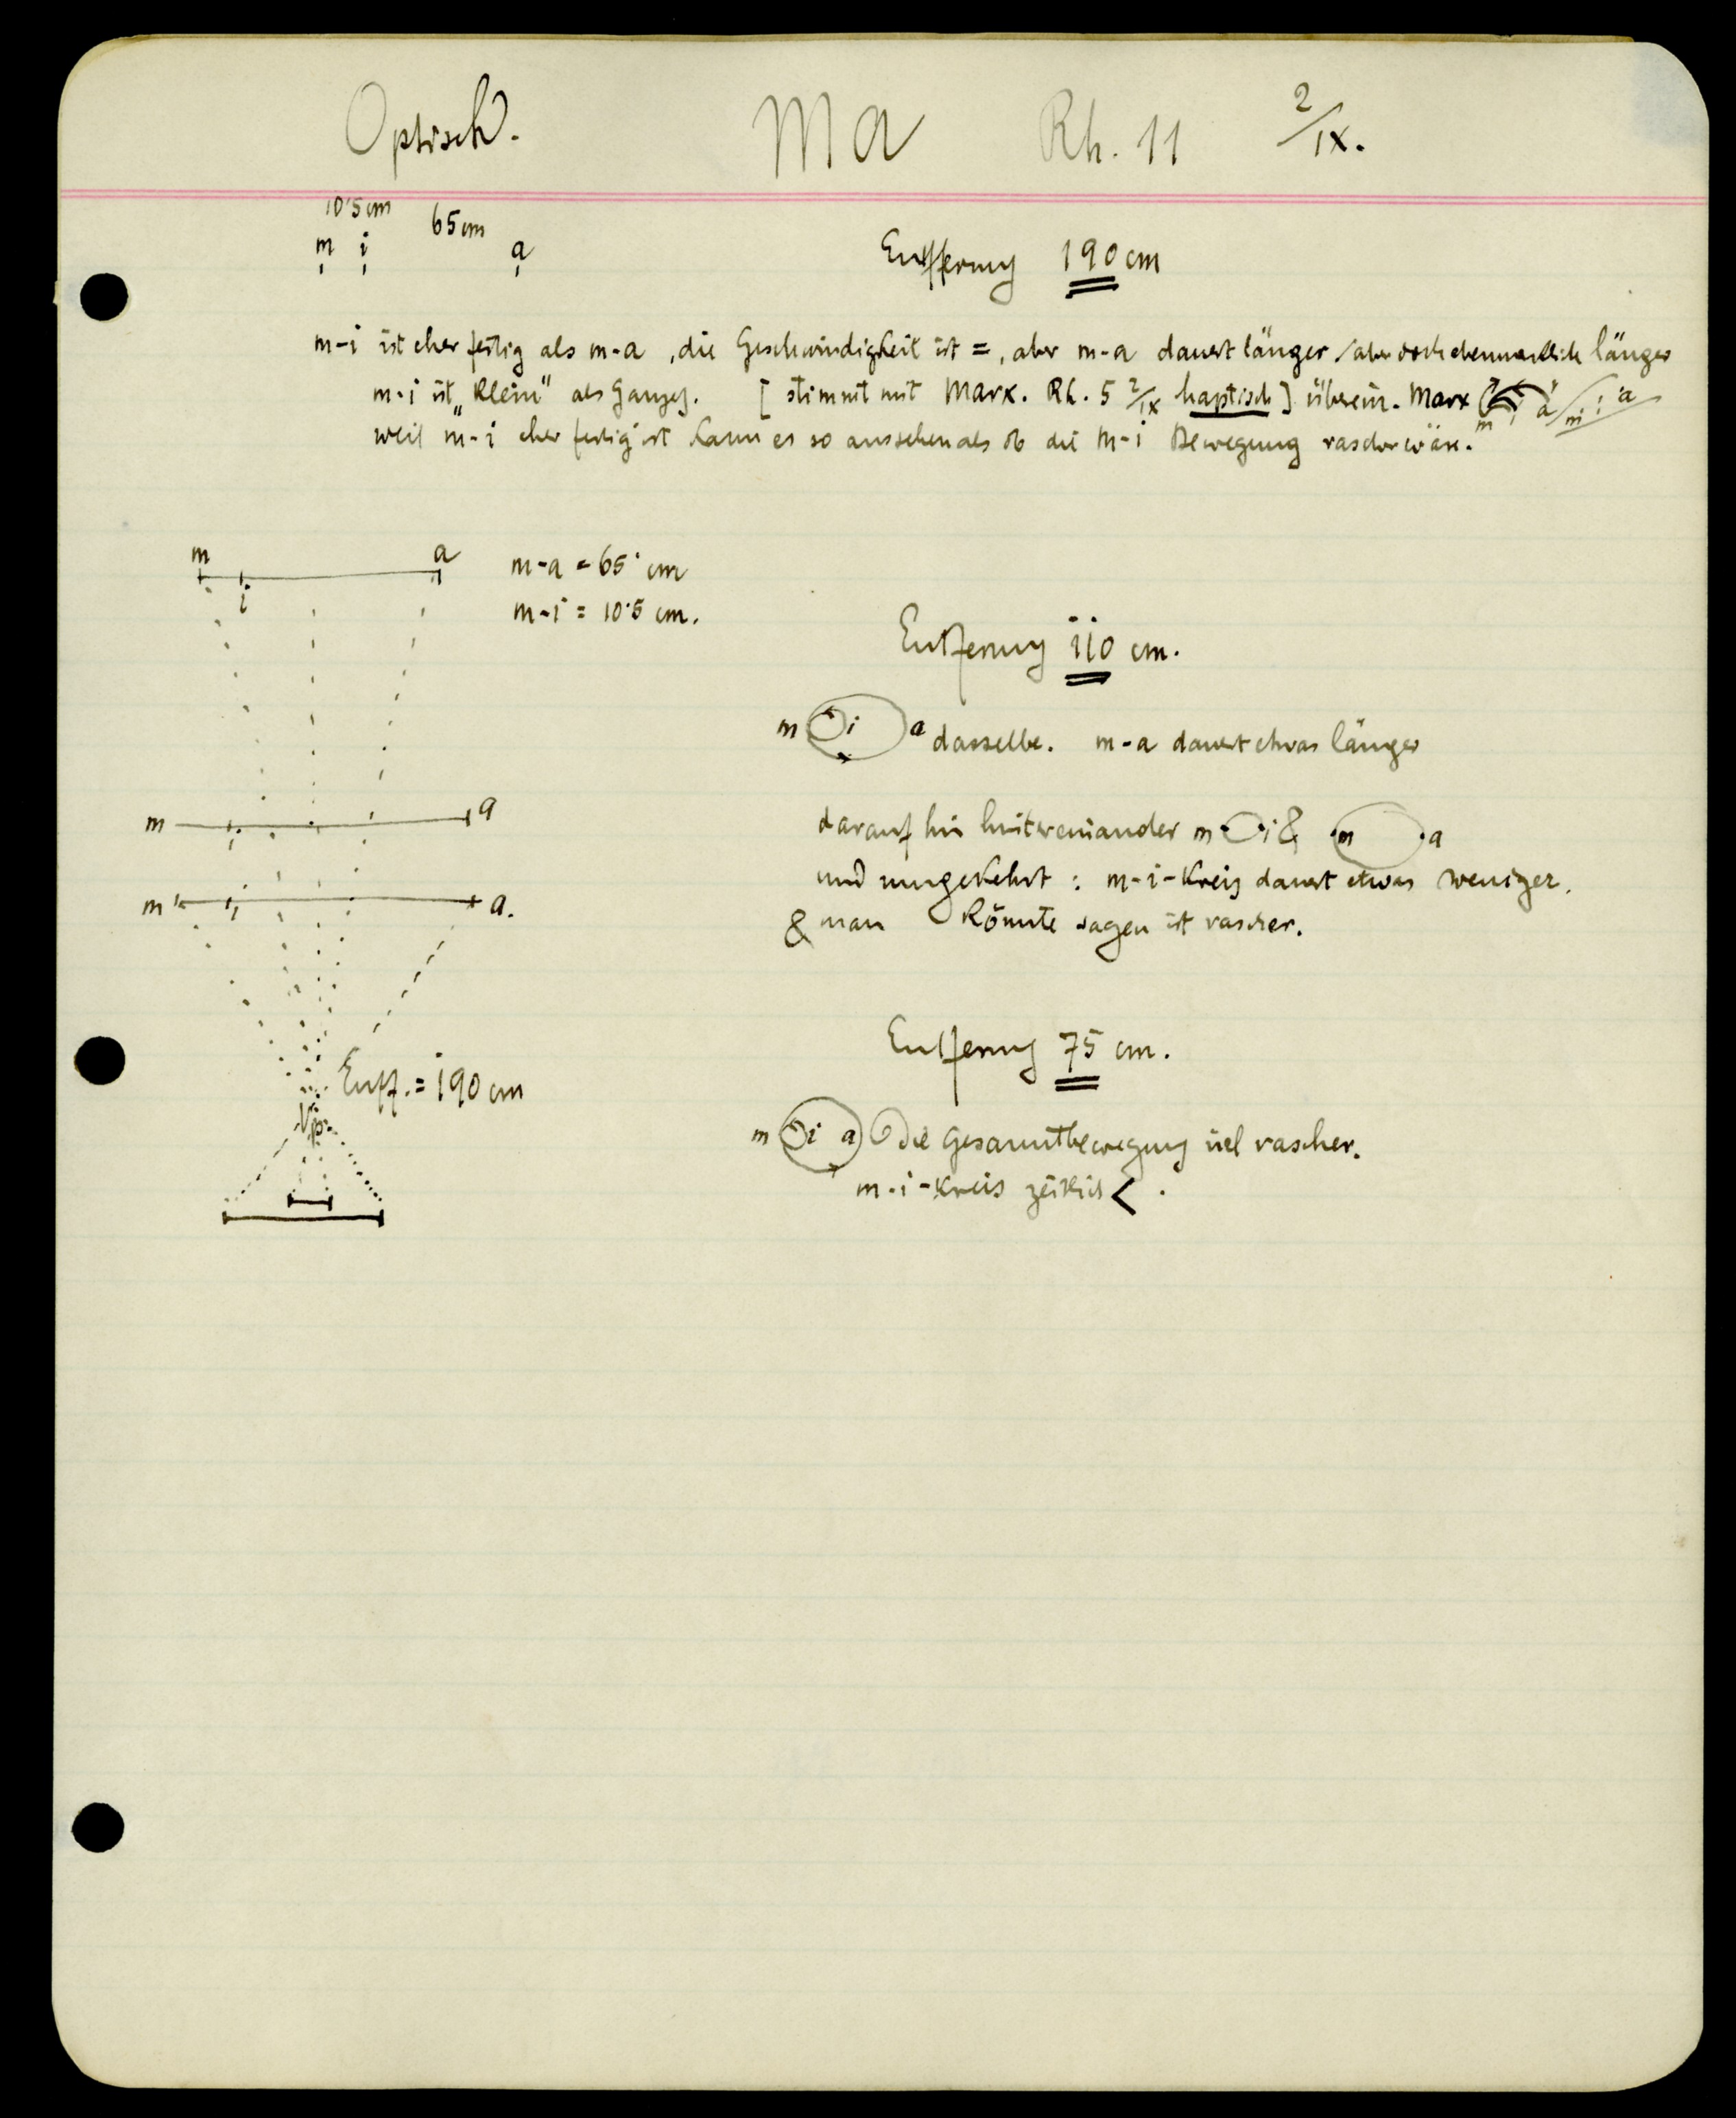 Optisch. Ma Rh. 11 2/IX.
10·5 cm 65 cm
m i a
Entfernung 190 cm
m-i ist eher fertig als m-a, die Geschwindigkeit ist =, aber m-a dauert länger / aber doch ebenmerklich länger
m-i ist „klein" als Ganzes. [stimmt mit Marx. Rh. 5 2/IX haptisch] überein. Marx m i a / m i a
weil m-i eher fertig ist kann es so aussehen als ob die m-i Bewegung rascher wäre.
m a
i
m-a = 65 cm
m-i = 10·5 cm.
Entfernung 110 cm.
m i a dasselbe. m-a dauert etwas länger
m i a
darauf hin hintereinander m i & m a
und umgekehrt : m-i-Kreis dauert etwas weniger.
& man könnte sagen ist rascher.
m i a.
Entfernung 75 cm.
Entf. = 190 cm
Vp.
m i a Die Gesamtbewegung viel rascher.
m-i-Kreis zeitlich < .